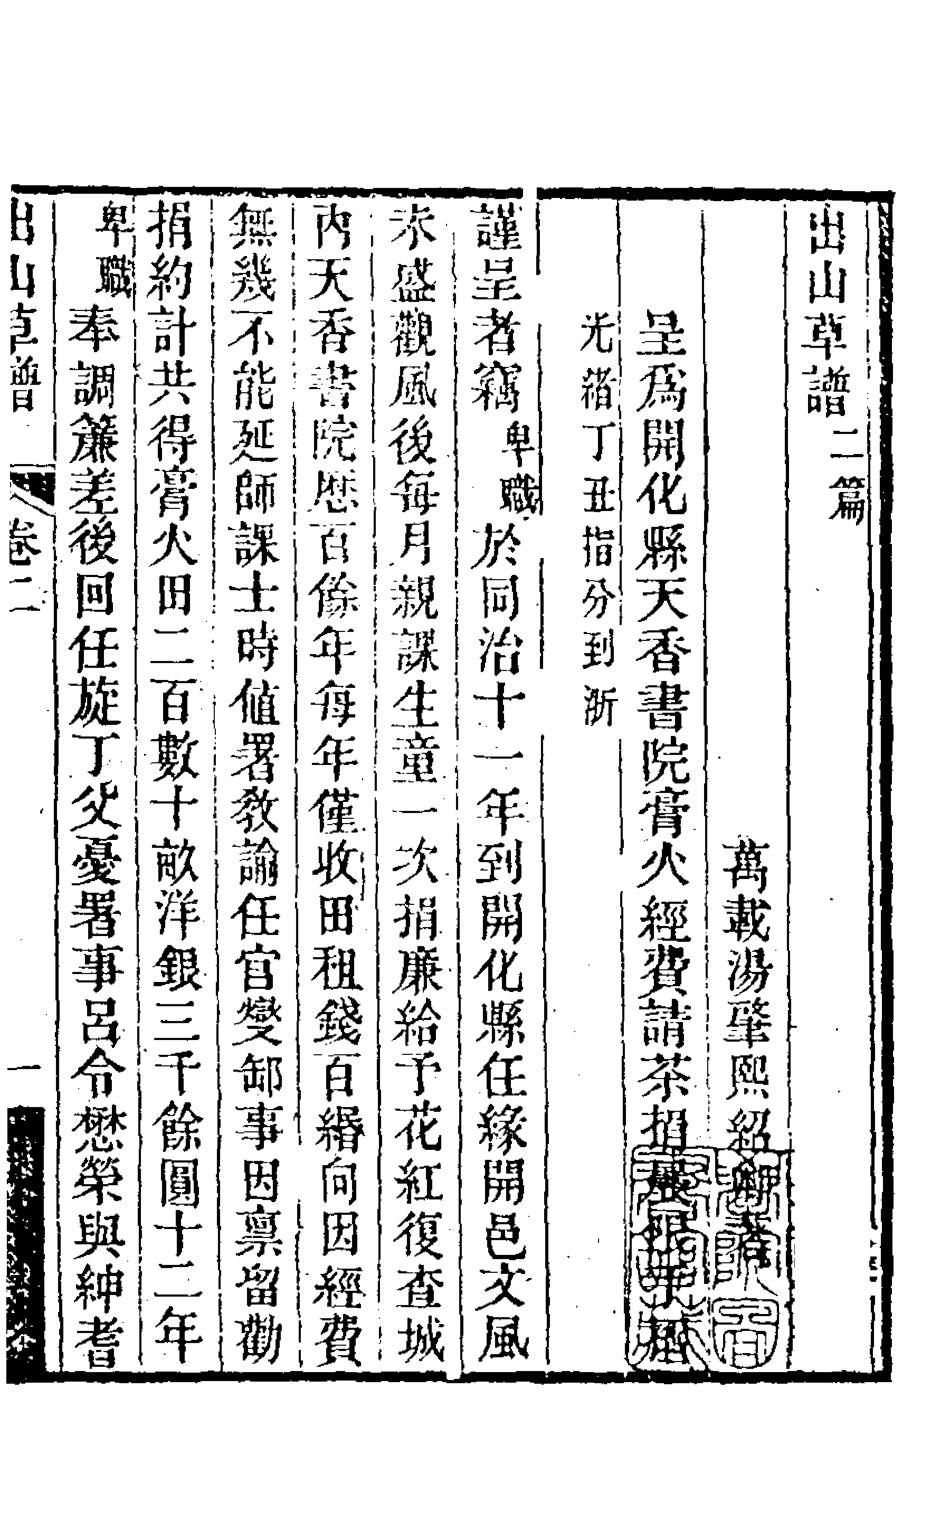 出山草譜二篇
萬載湯肇熙紹卿著
呈爲開化縣天香書院膏火經費請茶捐展限子
光緒丁丑指分到浙
謹呈者竊卑職於同治十一年到開化縣任緣開邑文風
未盛觀風後每月親課生童一次捐廉給予花紅復查城
內天香書院歷百餘年每年僅收田租錢百緡向因經費
無幾不能延師課士時値署教諭任官燮卸事因禀留勸
捐約計共得膏火田二百數十畝洋銀三千餘圓十二年
卑職奉調簾差後回任旋丁父憂署事呂令懋榮與紳耆
出山草譜 卷二 一